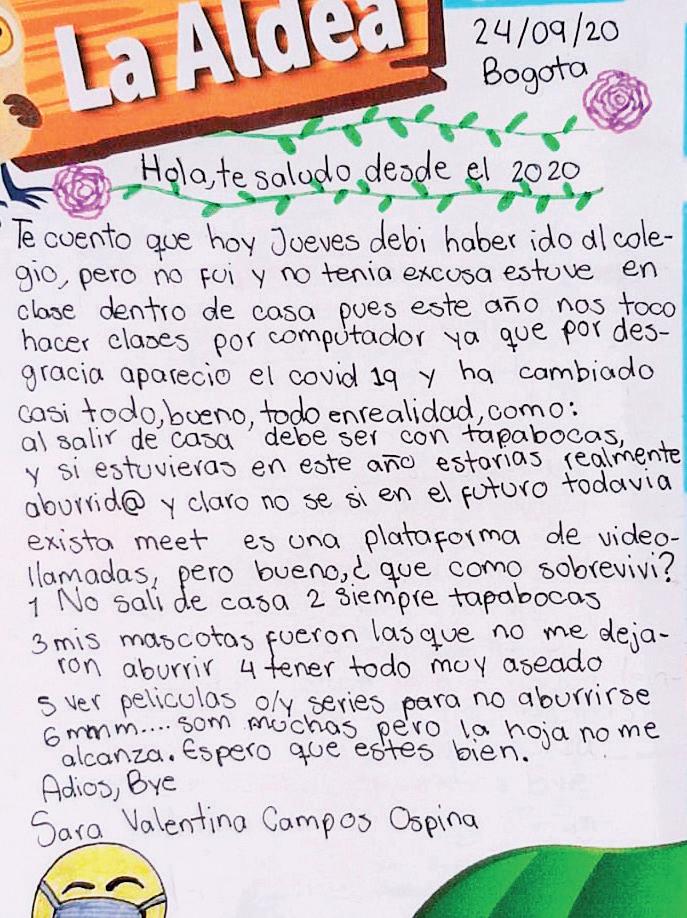 La Aldea
24/09/20
Bogota
Hola, te saludo desde el 2020
Te cuento que hoy Jueves debi haber ido al cole-
gio, pero no fui y no tenia excusa estuve en
clase dentro de casa pues este año nos toco
hacer clases por computador ya que por des-
gracia aparecio el covid 19 y ha cambiado
casi todo, bueno, todo enrealidad, como:
al salir de casa debe ser con tapabocas,
y si estuvieras en este año estarias realmente
aburrid@ y claro no se si en el futuro todavia
exista meet es una plataforma de video-
llamadas, pero bueno, ¿ que como sobrevivi?
1 No sali de casa 2 siempre tapabocas
3 mis mascotas fueron las que no me deja-
ron aburrir 4 tener todo muy aseado
5 ver peliculas o/y series para no aburrirse
6 mmm.... som muchas pero la hoja no me
alcanza. Espero que estes bien.
Adios, Bye
Sara Valentina Campos Ospina